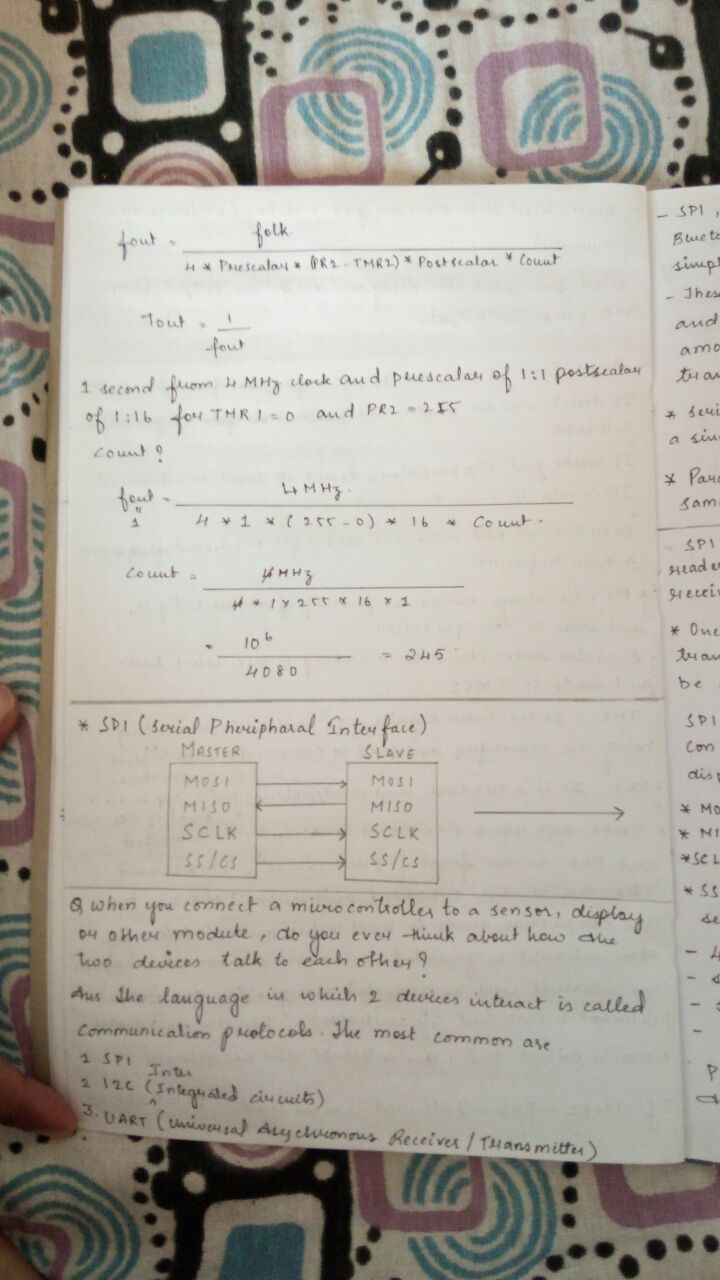 fout = fclk
4 * Prescalar * (PR2 - TMR2) * Postscalar * Count
Tout = 1
fout
1 second from 4 MHz clock and prescalar of 1:1 postscalar
of 1:16 for TMR1 = 0 and PR2 = 255
count ?
fout = 4 MHz
"
1
4 * 1 * (255 - 0) * 16 * Count .
Count = 4 MHz
4 * 1 x 255 * 16 x 1
= 10^6
4080
= 245
* SPI (Serial Pheripharal Interface)
MASTER SLAVE
MOSI MOSI
MISO MISO
SCLK SCLK
SS/CS SS/CS
Q when you connect a microcontroller to a sensor, display
or other module, do you ever think about how the
two devices talk to each other?
Ans The language in which 2 devices interact is called
communication protocols. The most common are
1 SPI
Inter
2 I2C (Integrated circuits)
3. UART (Universal Asychronous Receiver / Transmitter)
- SPI,
- These
and
* Seri
a sin
* Para
Same
SPI
reade
receiv
* One
tran
be
SPI
Con
disp
* MO
* MI
* SCL
* SS
se
- 4
- s